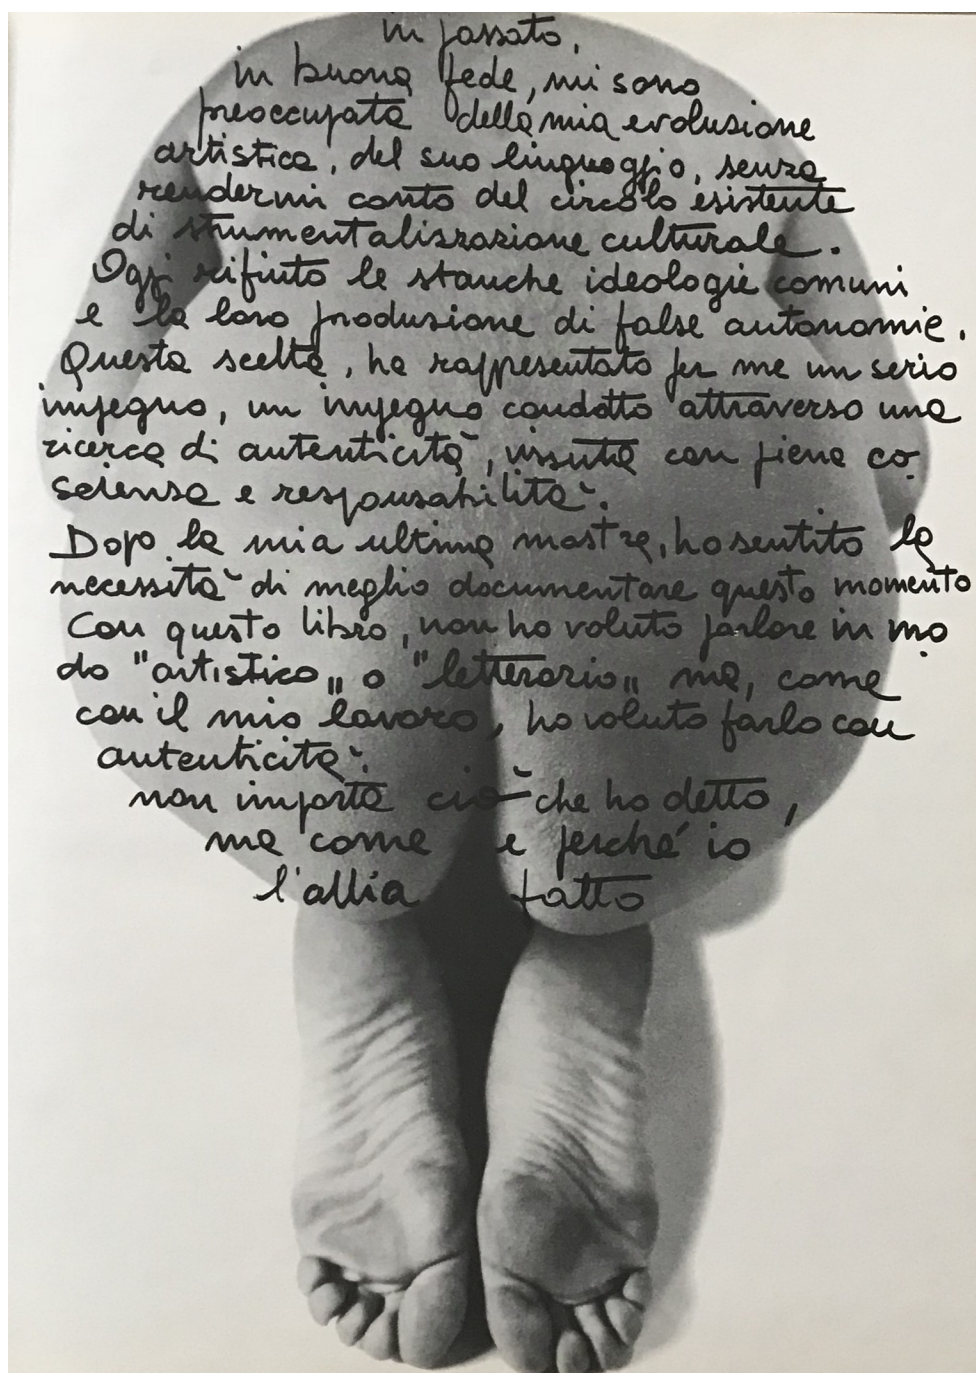 in passato,
in buona fede, mi sono
preoccupata della mia evolusione
artistica, del suo linguaggio, senza
rendermi conto del circolo esistente
di strumentalissazione culturale.
Oggi rifiuto le stanche ideologie comuni
e la loro produsione di false autonomie.
Questa scelta, ha rappresentato per me un serio
impegno, un impegno condotto attraverso una
ricerca di autenticità, vissuta con piena co
sciensa e responsabilità.
Dopo la mia ultima mostra, ho sentito la
necessità di meglio documentare questo momento
Con questo libro, non ho voluto parlare in mo
do "artistico" o "letterario" ma, come
con il mio lavoro, ho voluto farlo con
autenticità.
non importa ciò che ho detto,
ma come e perché io
l'abbia fatto